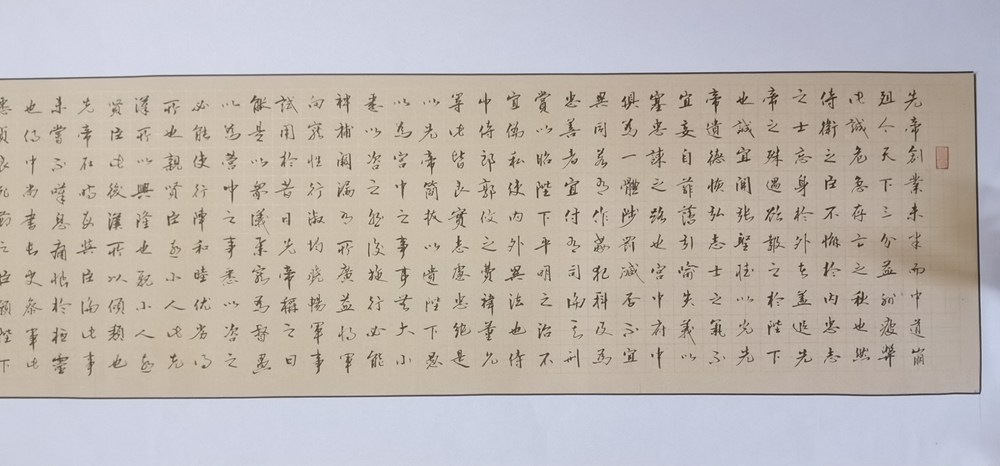 先帝創業未半而中道崩
殂今天下三分益州疲弊
此誠危急存亡之秋也然
侍衛之臣不懈於內忠志
之士忘身於外者蓋追先
帝之殊遇欲報之於陛下
也誠宜開張聖聽以光先
帝遺德恢弘志士之氣不
宜妄自菲薄引喻失義以
塞忠諫之路也宮中府中
俱為一體陟罰臧否不宜
異同若有作姦犯科及為
忠善者宜付有司論其刑
賞以昭陛下平明之治不
宜偏私使內外異法也侍
中侍郎郭攸之費禕董允
等此皆良實志慮忠純是
以先帝簡拔以遺陛下愚
以為宮中之事事無大小
悉以咨之然後施行必能
裨補闕漏有所廣益將軍
向寵性行淑均曉暢軍事
試用於昔日先帝稱之曰
能是以眾議舉寵為督愚
以為營中之事悉以咨之
必能使行陣和睦優劣得
所也親賢臣遠小人此先
漢所以興隆也親小人遠
賢臣此後漢所以傾頹也
先帝在時每與臣論此事
未嘗不嘆息痛恨於桓靈
也侍中尚書長史參軍此
悉貞良死節之臣願陛下